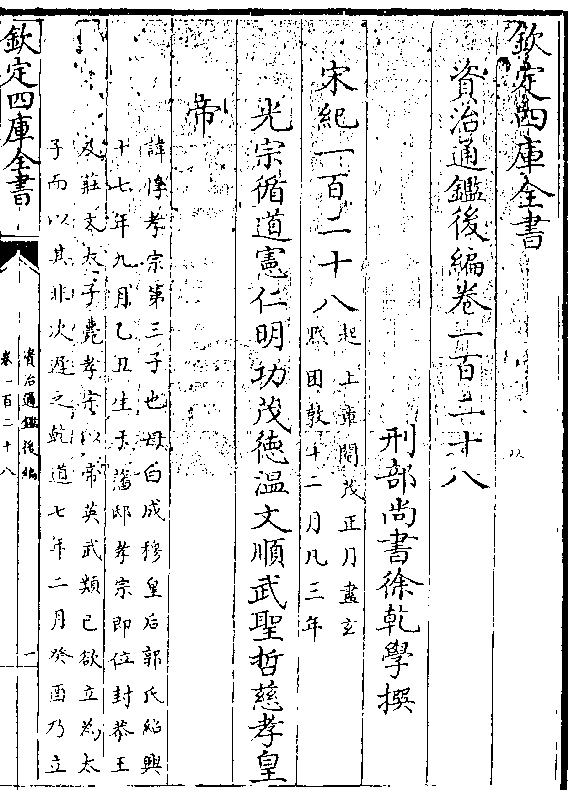 欽定四庫全書
資治通鑑後編卷一百二十八
刑部尚書徐乾學撰
宋紀一百二十八
起上章閹茂正月盡玄
黓困敦十二月凡三年
光宗循道憲仁明功茂德溫文順武聖哲慈孝皇
帝
諱惇孝宗第三子也母曰成穆皇后郭氏紹興
十七年九月乙丑生于藩邸孝宗即位封恭王
及莊文太子薨孝宗以帝英武類己欲立為太
子而以其非次遲之乾道七年二月癸酉乃立
欽定四庫全書
資治通鑑後編
卷一百二十八
一